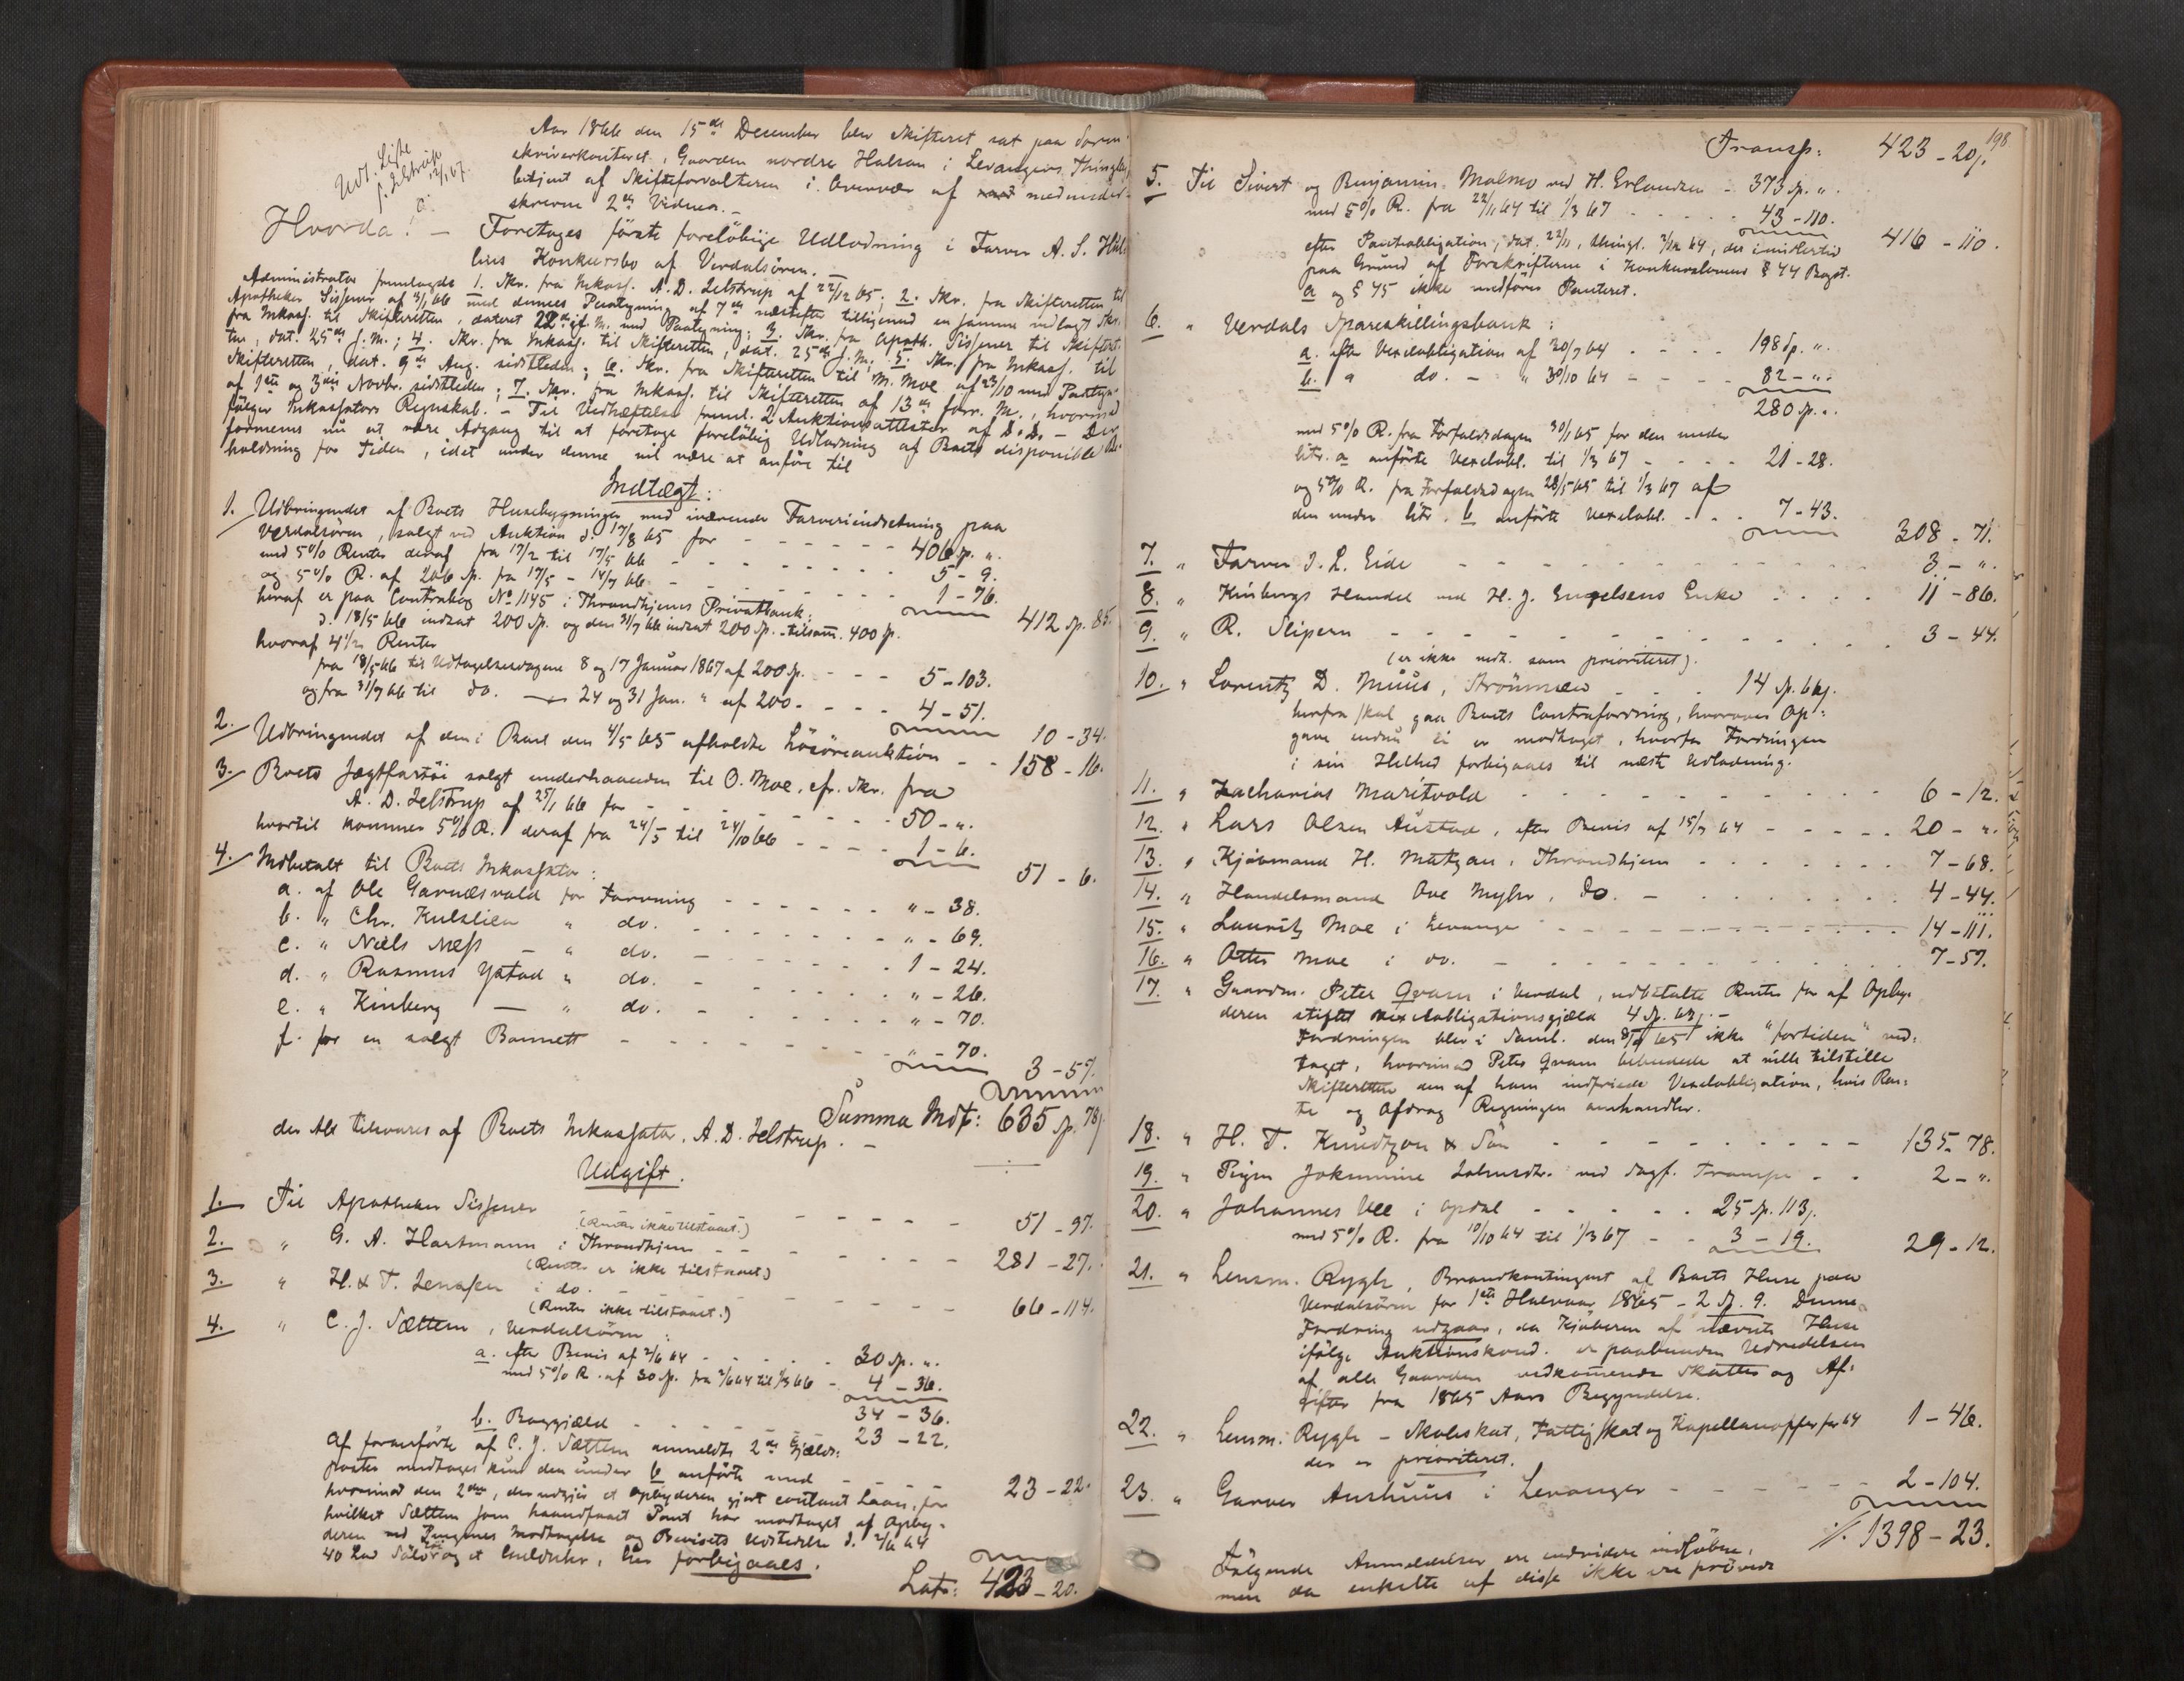 Udt. Liste
f. Jelstrup
12/1 67.
Aar 1866 den 15de December blev Skifteret sat paa Soren-
skriverkontoret, Gaarden nordre Halsan i Levangers Thinglag,
betjent af Skifteforvalteren i Overvær af med medunder-
skrevne 2de Vidner. –
Hvorda! – Foretoges første foreløbige Udlodning i Farver A. S.
lins Konkursbo af Verdalsøren. –
Administrator fremlagde 1. Skr. fra Inkass. A. D. Jelstrup af 22/12 65; 2. Skr. fra Skifteretten til
Apotheker Sissener af 3/1 66 med dennes Paategning af 7de næstefter tilligemed en samme vedlagt Skr.
fra Inkass. til Skifteretten, dateret 22de f. M. med Paategning; 3. Skr. fra Apoth. Sissener til Skifteret-
ten, dat. 25de f. M.; 4. Skr. fra Inkass. til Skifteretten, dat. 25de f. M.; 5. Skr. fra Inkass. til
Skifteretten, dat. 9de Aug. sidstleden; 6. Skr. fra Skifteretten til M. Moe af 23/10 med Paategn.
af 1ste og 3die Novbr. sidstleden; 7. Skr. fra Inkass. til Skifteretten af 13de forr. M., hvormed
følger Inkassators Regnskab. – Til Vedhæftelse freml. 2 Auktionsattester af D. D. – Der
formenes nu at være Adgang til at foretage foreløbig Udlodning af Boets disponible Be-
holdning for Tiden, idet under denne vil være at anføre til
Indtægt:
1. Udbringendet af Boets Husebygninger med iværende Farveriindretning paa
Verdalsøren, solgt ved Auktion d. 17/8 65 for - - - - - 406 Sp. „.
med 5% Renter deraf fra 17/2 til 17/5 66 - - - - - 5 - 9.
og 5% R. af 206 Sp. fra 17/5 - 14/7 66 - - - - - 1 - 76.
412 Sp. 85.
heraf er paa Contrabog No 1145 i Throndhjems Privatbank:
d. 18/5 66 indsat 200 Sp. og den 31/7 66 indsat 200 Sp. - tilsam. 400 Sp.
hvoraf 4½ Renter
fra 18/5 66 til Udtagelsesdagene 8 og 17 Januar 1867 af 200 Sp. - - - 5 - 103.
og fra 31/7 66 til do. — 24 og 31 Jan. " af 200 - - - - 4 - 51.
10 - 34.
2. Udbringendet af den i Boet den 4/5 65 afholdte Løsøreauktion - - 158 - 16.
3. Boets Jægtfartøi solgt underhaanden til O. Moe, cfr. Skr. fra
A. D. Jelstrup af 25/1 66 for - - - - - 50 - „.
hvortil kommer 5% R. deraf fra 24/5 til 24/10 66 - - - - 1 - 6.
51 - 6.
4. Indbetalt til Boets Inkassator:
a. af Ole Garnæsvald for Farvning - - - - - „ - 38.
b. „ Chr. Kulslien „ do. - - - - - „ - 69.
c. „ Niels Næss – „ do. - - - - - 1 - 24.
d. „ Rasmus Ystad „ do. - - - - - „ - 26.
e. „ Kinberg — „ do. - - - - - „ - 70.
f. for en solgt Bannett - - - - - „ - 70.
3 - 57.
Summa Indt: 635 Sp. 78 s.
der Alt tilsvares af Boets Inkassator, A. D. Jelstrup. –
Udgift.
1. Til Apotheker Sissener - - - - - 51 - 97.
(Renter ikke tilstaaet.)
2. „ G. A. Hartmann i Throndhjem - - - - - 281 - 27.
(Renter er ikke tilstaaet)
3. „ H. & T. Jenssen i do. - - - - - 66 - 114.
(Renter ikke tilstaaet.)
4. „ C. J. Sættem, Verdalsøren:
a. efter Bevis af 2/6 64 - - - - - 30 Sp. „.
med 5% R. af 30 Sp. fra 2/6 64 til 1/3 66 - 4 - 36.
34 - 36.
b. Boggjæld - - - - - 23 - 22.
Af foranførte af C. J. Sættem anmeldte 2de Gjælds-
poster medtages kun den under b anførte med - - - 23 - 22.
hvorimod den 2den, der udgjør et Opbyderen gjort contant Laan, for
hvilket Sættem som haandfaaet Pant har modtaget af Opby-
deren ved Pengenes Modtagelse og Bevisets Udstedelse d. 2/6 64
40 Lod Sølv og et Gulduhr, her forbigaaes.
Lats: 423 - 20.
198
Transp: 423 - 20 s.
5. Til Sivert og Benjamin Malmo ved H. Erlandsen - 373 Sp. „.
med 5% R. fra 22/11 64 til 1/3 67 - - - - - 43 - 110.
416 - 110.
efter Pantobligation, dat. 22/11, thingl. 2/12 64, der imidlertid
paa Grund af Forskrifterne i Konkurslovens § 44 Bogst.
a og § 45 ikke medføres Panteret.
6. „ Verdals Spareskillingsbank:
a. efter Vexelobligation af 30/7 64 - - - - 198 Sp. „.
b. „ do. – „ 30/10 64 - - - - 82 - „.
280 Sp. „.
med 5% R. fra Forfaldsdagen 30/1 65 for den under
litr. a anførte Vexelobl. til 1/3 67 - - - - 21 - 28.
og 5% R. fra Forfaldsdagen 28/5 65 til 1/3 67 af
den under litr. b anførte Vexelobl. - - - 7 - 43.
308 - 71.
7. „ Farver J. L. Eide - - - - - 3 - „.
8. „ Kinbergs Handel ved H. J. Engelsens Enke - - - - 11 - 86.
9. „ R. Slipern - - - - - 3 - 44.
(er ikke vedt. som prioriteret).
10. „ Lorentz D. Müüs, Strømmen - - - 14 Sp. 66 s.
herfra skal gaa Boets Contrafordring, hvorover Op-
gave endnu ei er modtaget, hvorfor Fordringen
i sin Helhed forbigaaes til næste Udlodning.
11. „ Zacharias Maritvold - - - - - 6 - 12.
12. „ Lars Olsen Austad, efter Bevis af 15/7 64 - - - - 20 - „.
13. „ Kjøbmand H. Matzau, Throndhjem - - - - - 7 - 68.
14. „ Handelsmand Ove Myhr, do. - - - - - 4 - 44.
15. „ Lauritz Moe i Levanger - - - - - 14 - 111.
16. „ Otter Moe i do. - - - - - 7 - 57.
17. „ Gaardm. Peter Qvam i Verdal, udbetalte Renter for af Opby-
deren stiftet Vexelobligationsgjæld 4 Sp. 63 s. –
Fordringen blev i Saml. den 65 ikke "fortiden" ved-
taget, hvorimod Peter Qvam bebudede at ville tilstille
Skifteretten den af ham indfriede Vexelobligation, hvis Ren-
te og Afdrag Regningen omhandler.
18. „ H. T. Knudtzon & Søn - - - - - 135 - 78.
19. „ Pigen Jokumine Johnsdtr. ved Sagf. Trampe - - 2 - „.
20. „ Johannes Vee i Opdal - - - - - 25 Sp. 113 s.
med 5% R. fra 10/10 64 til 1/3 67 - - 3 - 19.
29 - 12.
21. „ Lensm. Rygh, Brandkontingent af Boets Huse paa
Verdalsøren for 1ste Halvaar 1865 - 2 Sp. 9. Denne
Fordring udgaar, da Kjøberen af nævnte Huse
ifølge Auktionskond. er paabunden Udredelsen
af alle Gaarden vedkommende Skatter og Af-
gifter fra 1865 Aars Begyndelse.
22. „ Lensm. Rygh – Skoleskat, Fattigskat og Kapellanopfer for 64 1 - 46.
der er prioriteret.
23. „ Garver Aushuus i Levanger - - - - - 2 - 104.
1398 - 23.
Følgende Anmeldelser ere endvidere indløbne,
men da enkelte af disse ikke ere prøvede